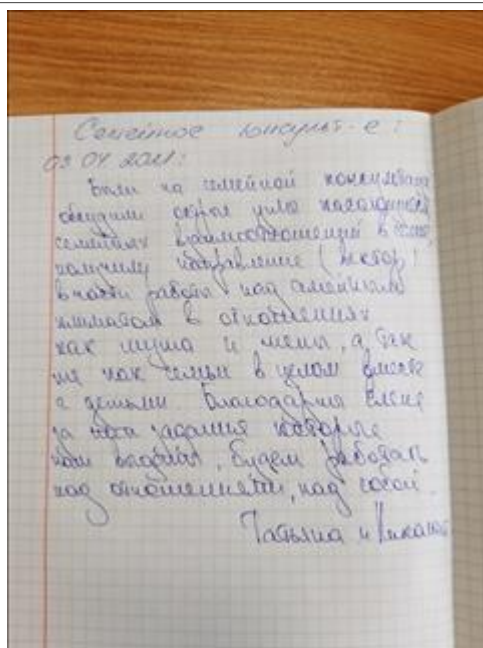 Семейное консульт-е:
09.04.2021:
Были на семейной консультации
обсудили
семейных взаимоотношений в
получили направление (вектор)
в части работы над семейным
климатом в отношениях
как мужа и жены, а так
же как семьи в целом вместе
с детьми. Благодарим Елену
за
нам, будем работать
над отношениями, над собой.
Татьяна и